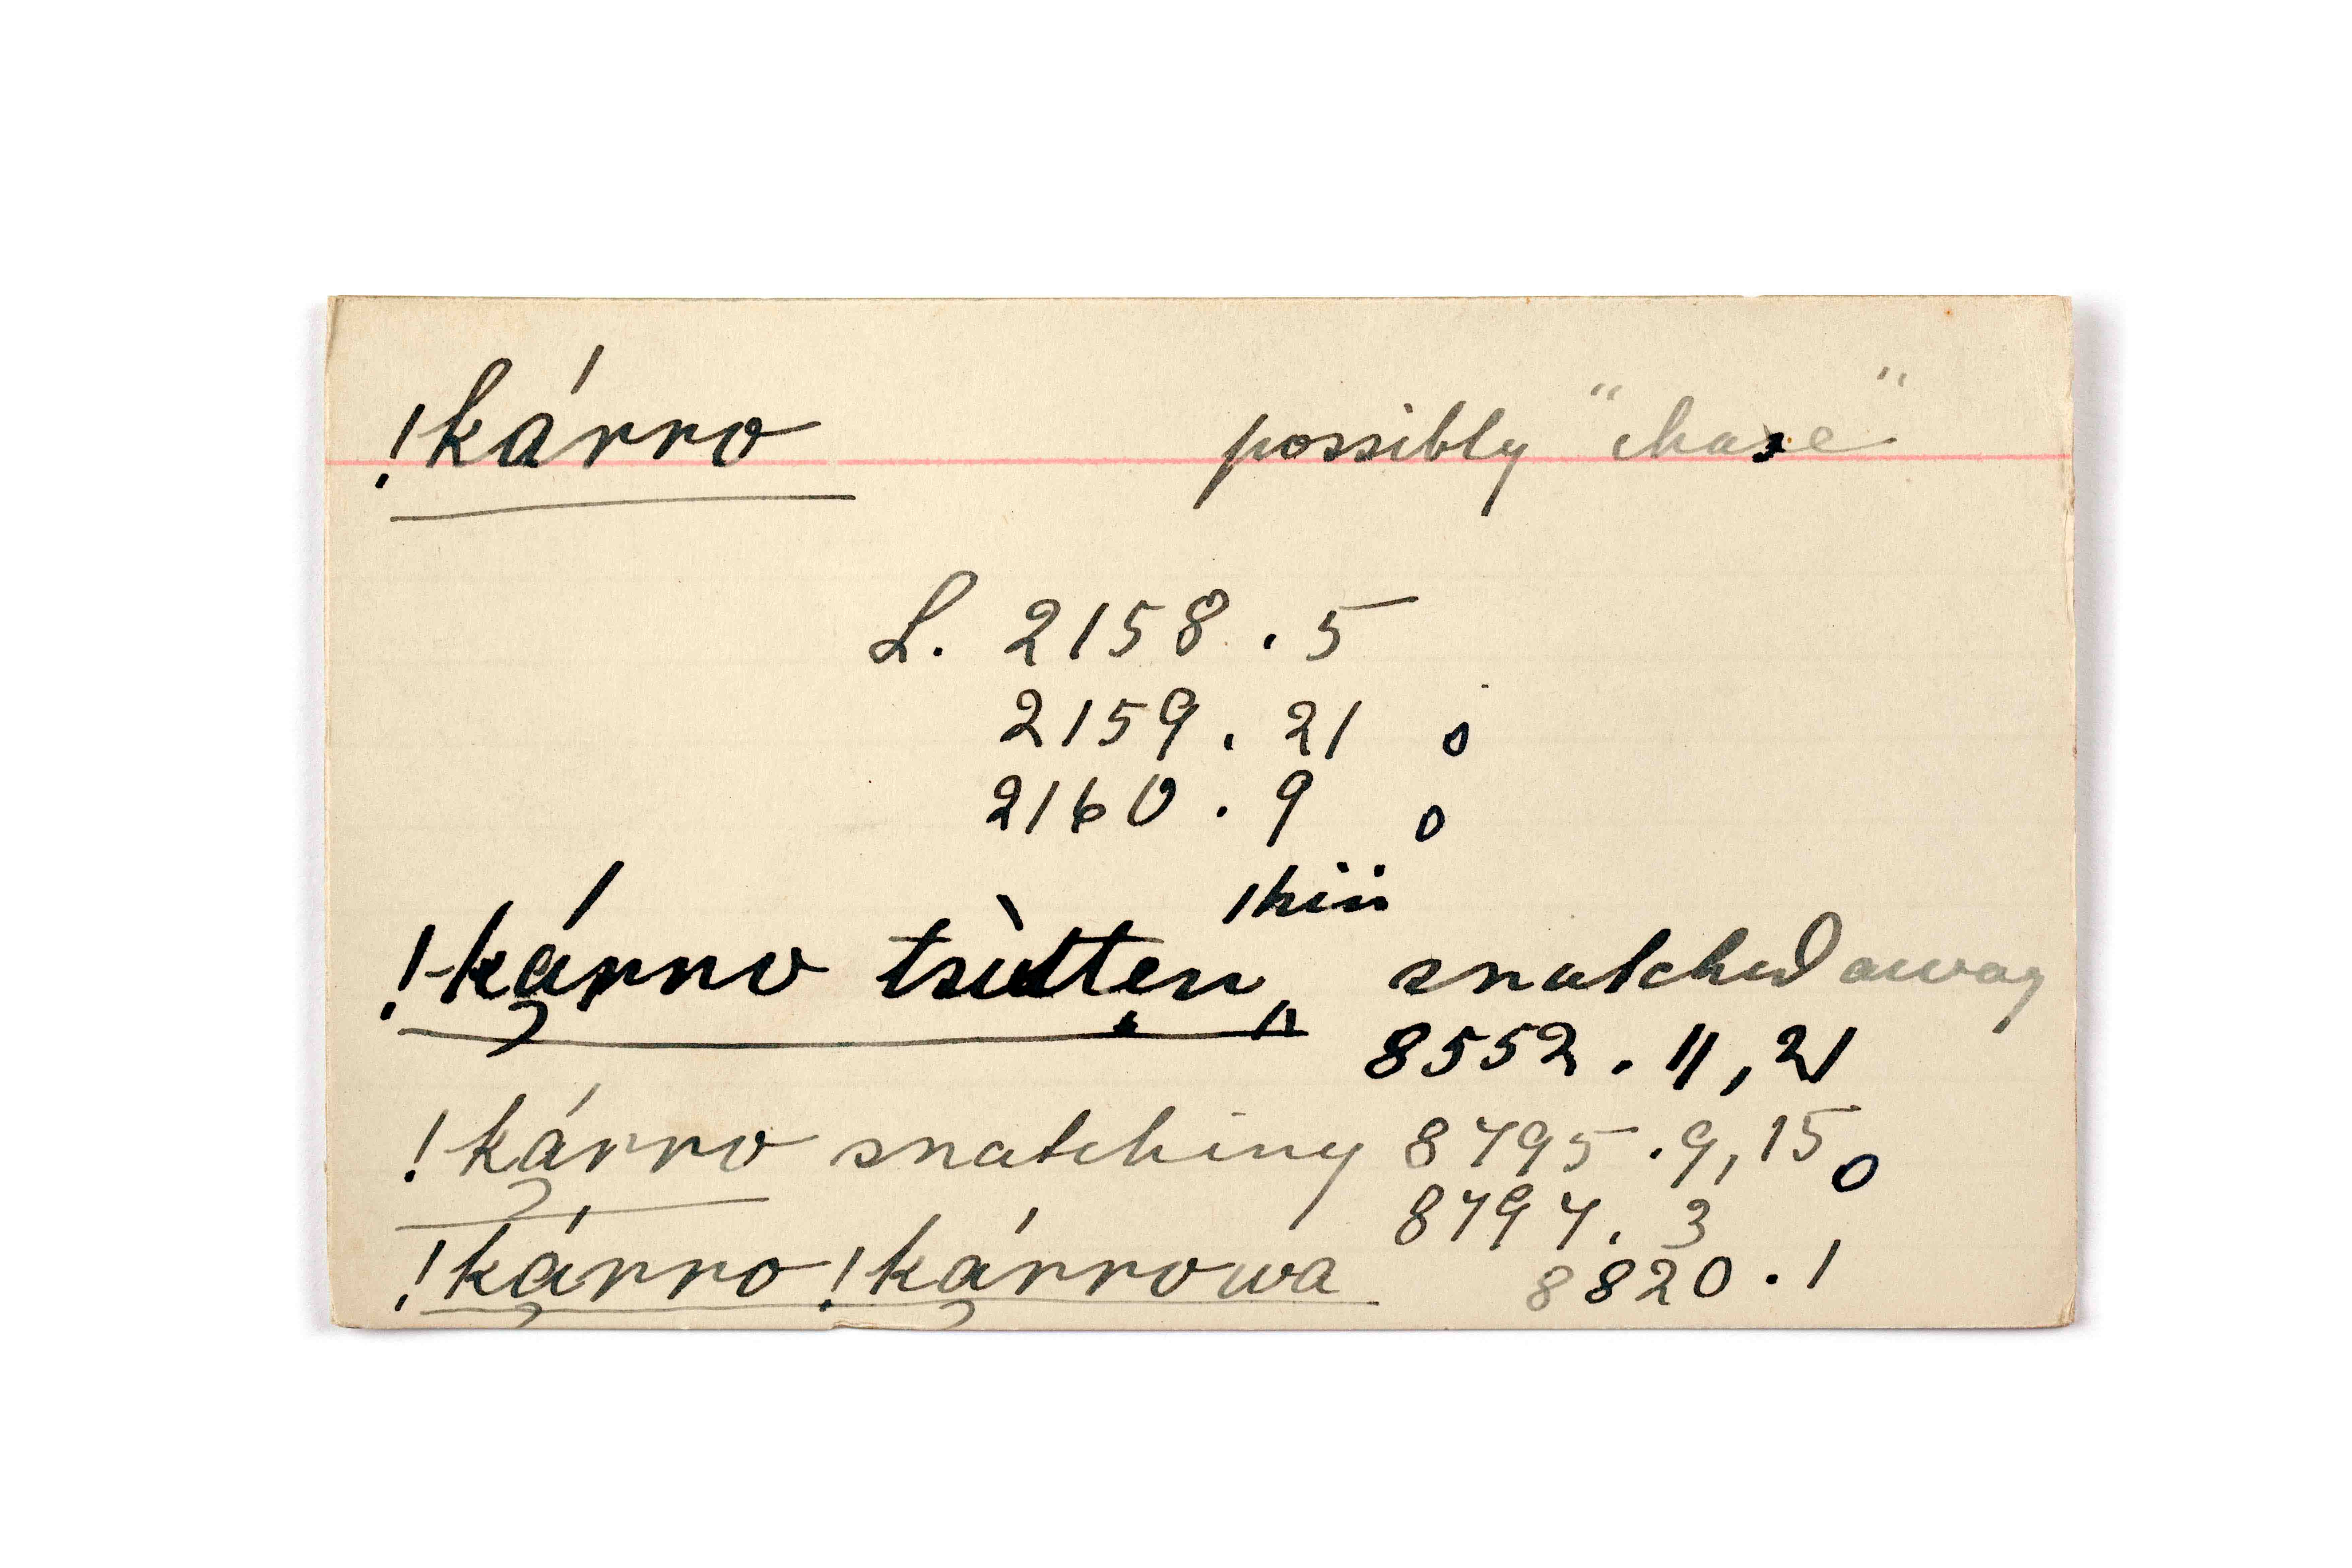 !kárro possibly "chase"
L. 2158 . 5
2159 . 21 o
2160 . 9 o
!kárro tsùtten ‸ |hiii snatched away
8552 . 11, 21
!kárro snatching 8795 . 9, 15 o
8797 . 3
!kárro !kárrowa 8820 . 1